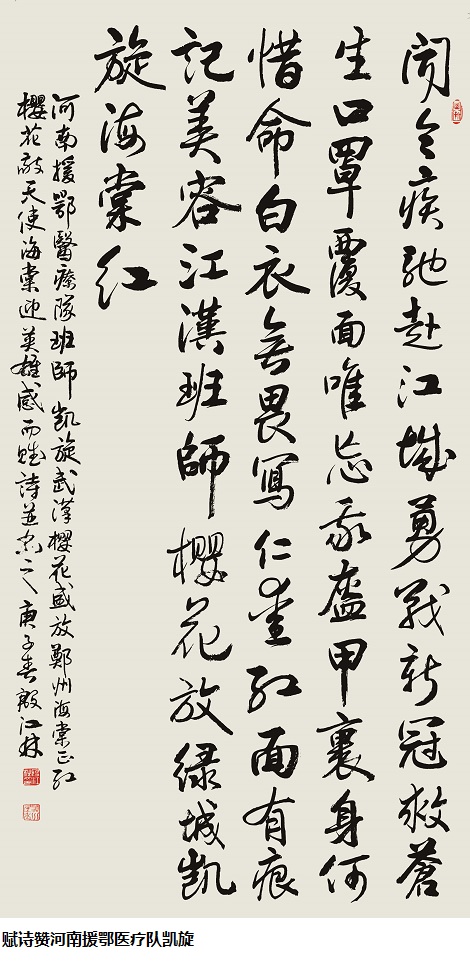 闻令疾驰赴江城勇战新冠救苍
生口罩覆面唯忘我盔甲裹身何
惜命白衣無畏寫仁爱红面有痕
記美容江漢班師櫻花放绿城凯
旋海棠红
河南援鄂醫療隊班師凯旋武漢櫻花盛放鄭州海棠正红
櫻花敬天使海棠迎英雄感而赋詩並書之庚子春殿江林
赋诗赞河南援鄂医疗队凯旋